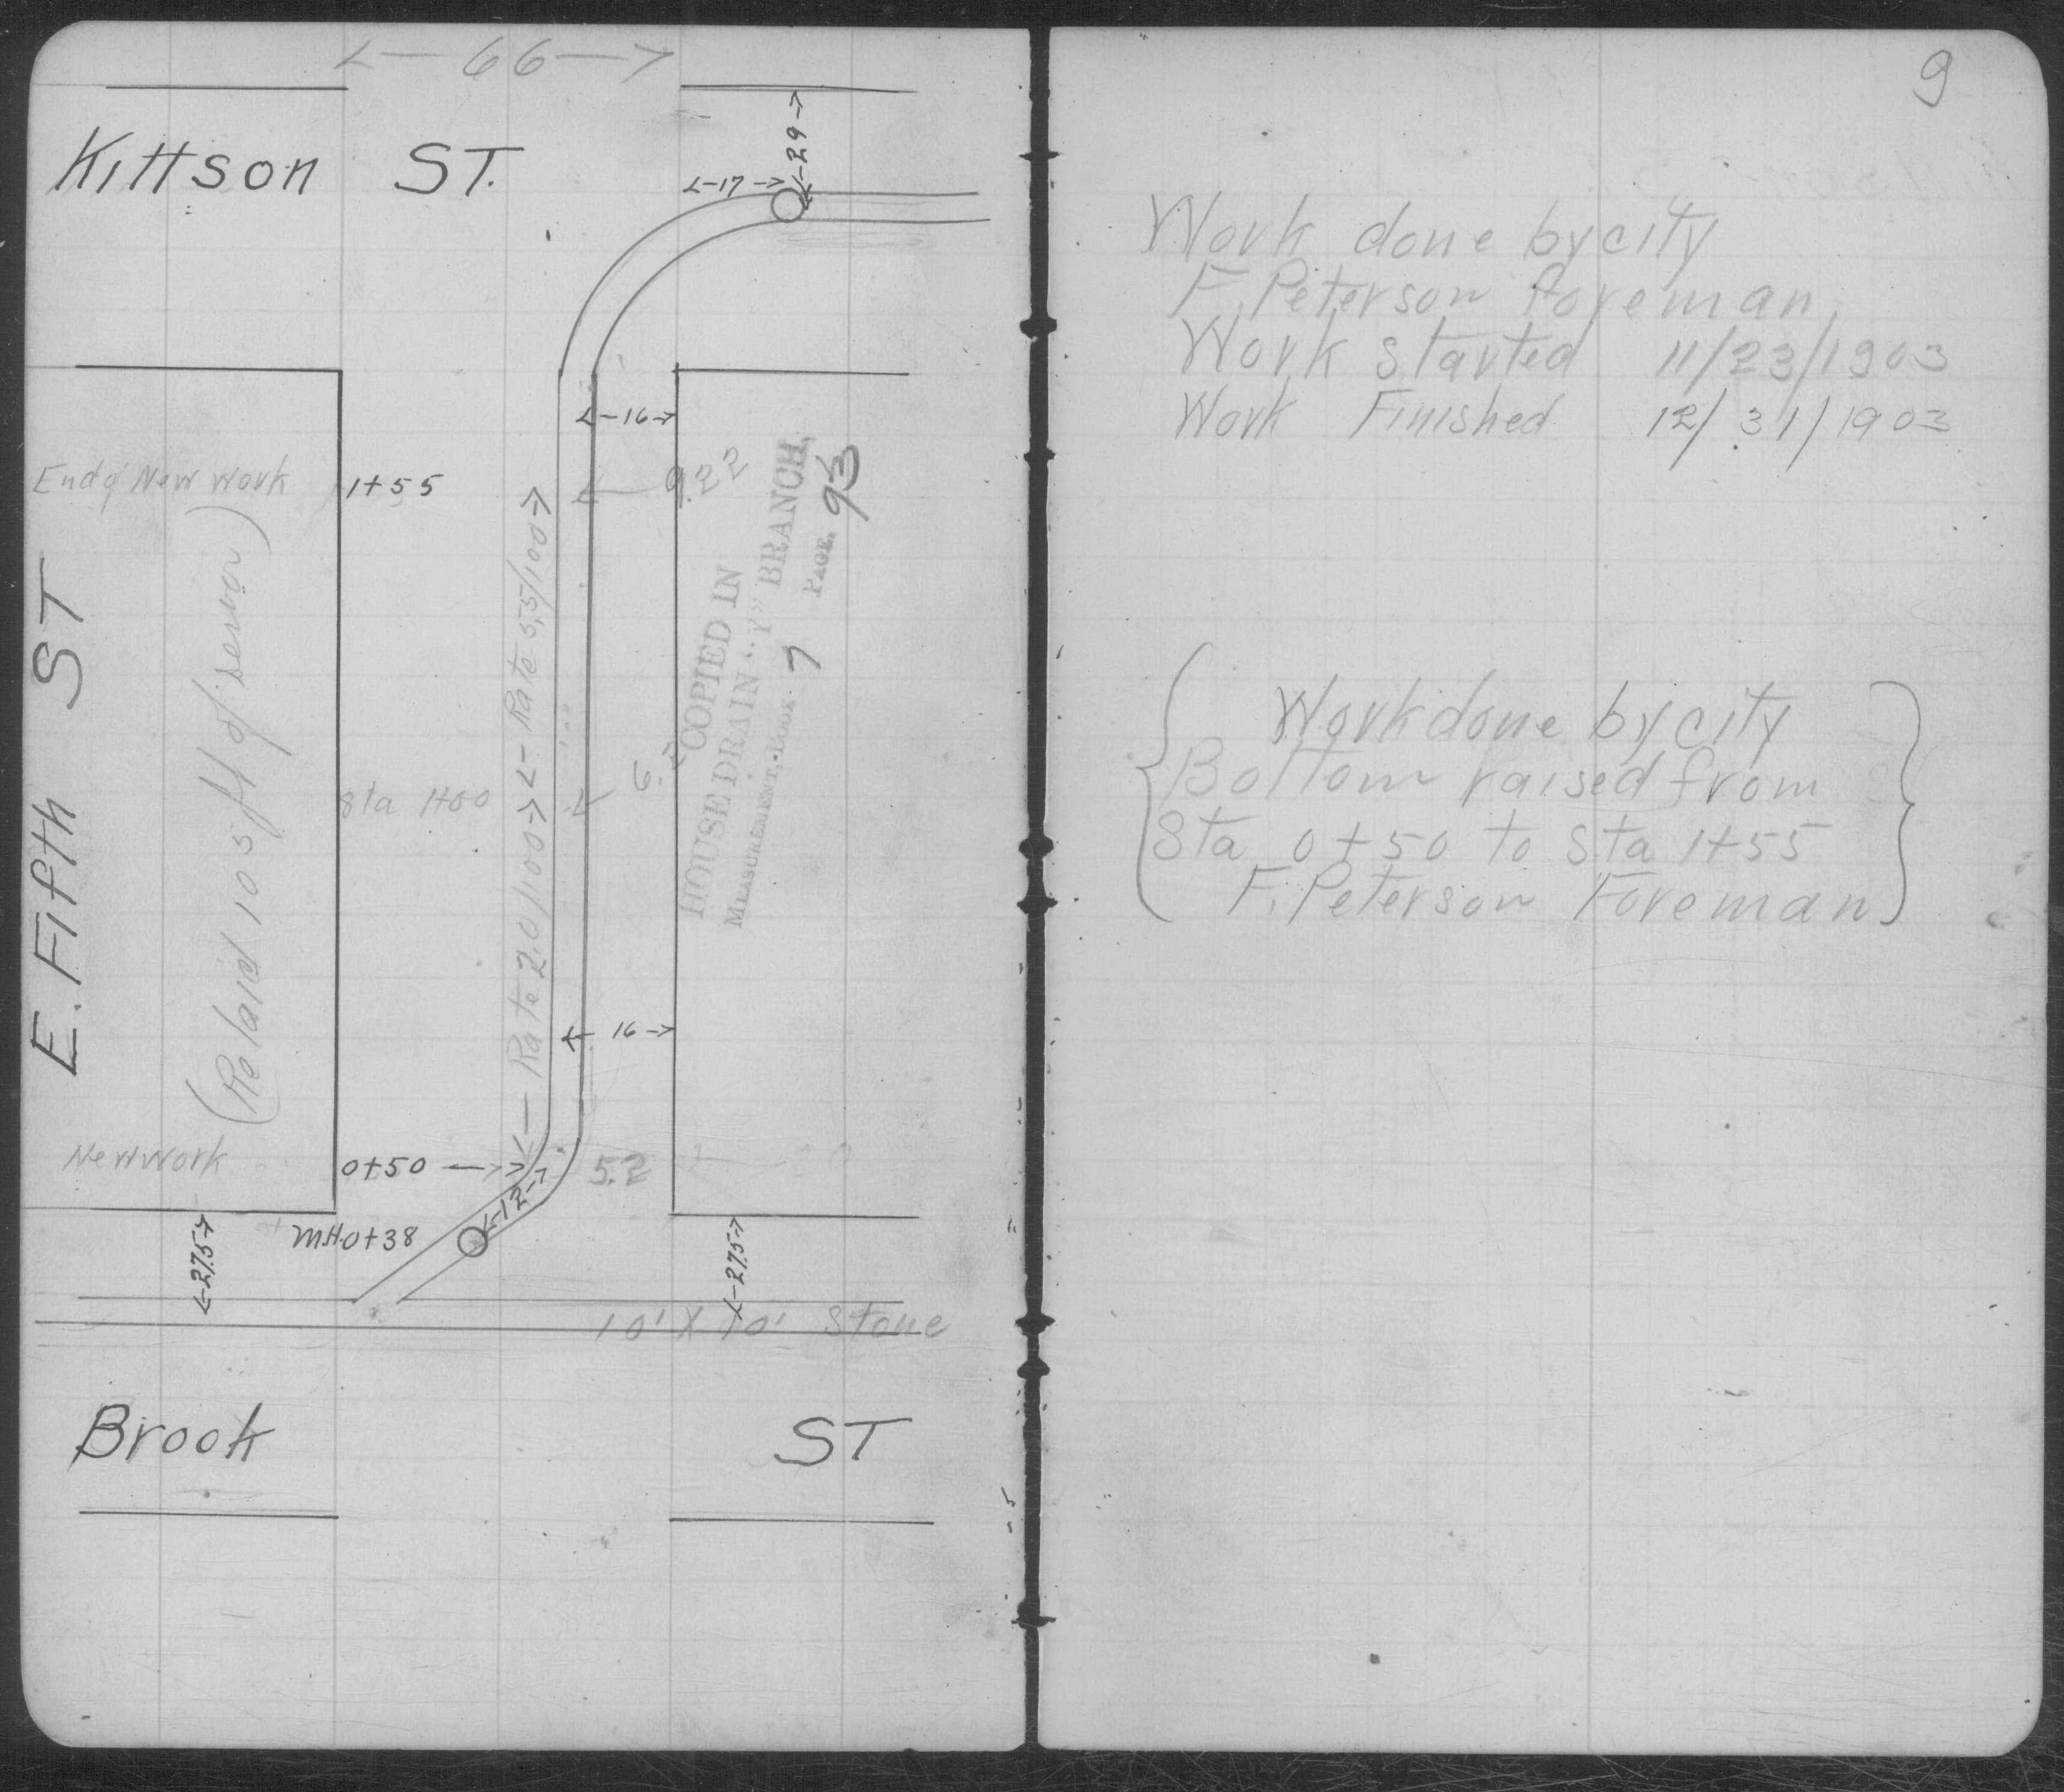 <- 66 ->
Kittson ST.
<-17->
<-29->
<-16->
End of New Work 1+55
9.22
E. Fifth ST
(Relaid 105 ft of sewer)
<- Rate 2.0/100 -> <- Rate 5.5/100 ->
COPIED IN
HOUSE DRAIN "Y" BRANCH,
MEASUREMENT,-BOOK 7 PAGE. 93
Sta 1+00
6.
<- 16 ->
New work 0+50 ->
5.2
<-12->
M.H. 0+38
<-27.5->
<-27.5->
10' X 10' Stone
Brook ST
9
Work done by city
F. Peterson Foreman
Work started 11/23/1903
Work Finished 12/31/1903
Work done by city
Bottom raised from
Sta 0+50 to Sta 1+55
F. Peterson Foreman